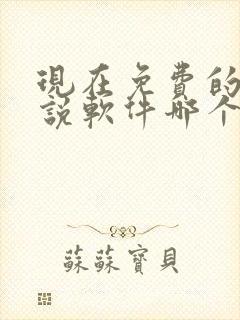 現在免費的
說軟件哪个
蘇蘇寶貝